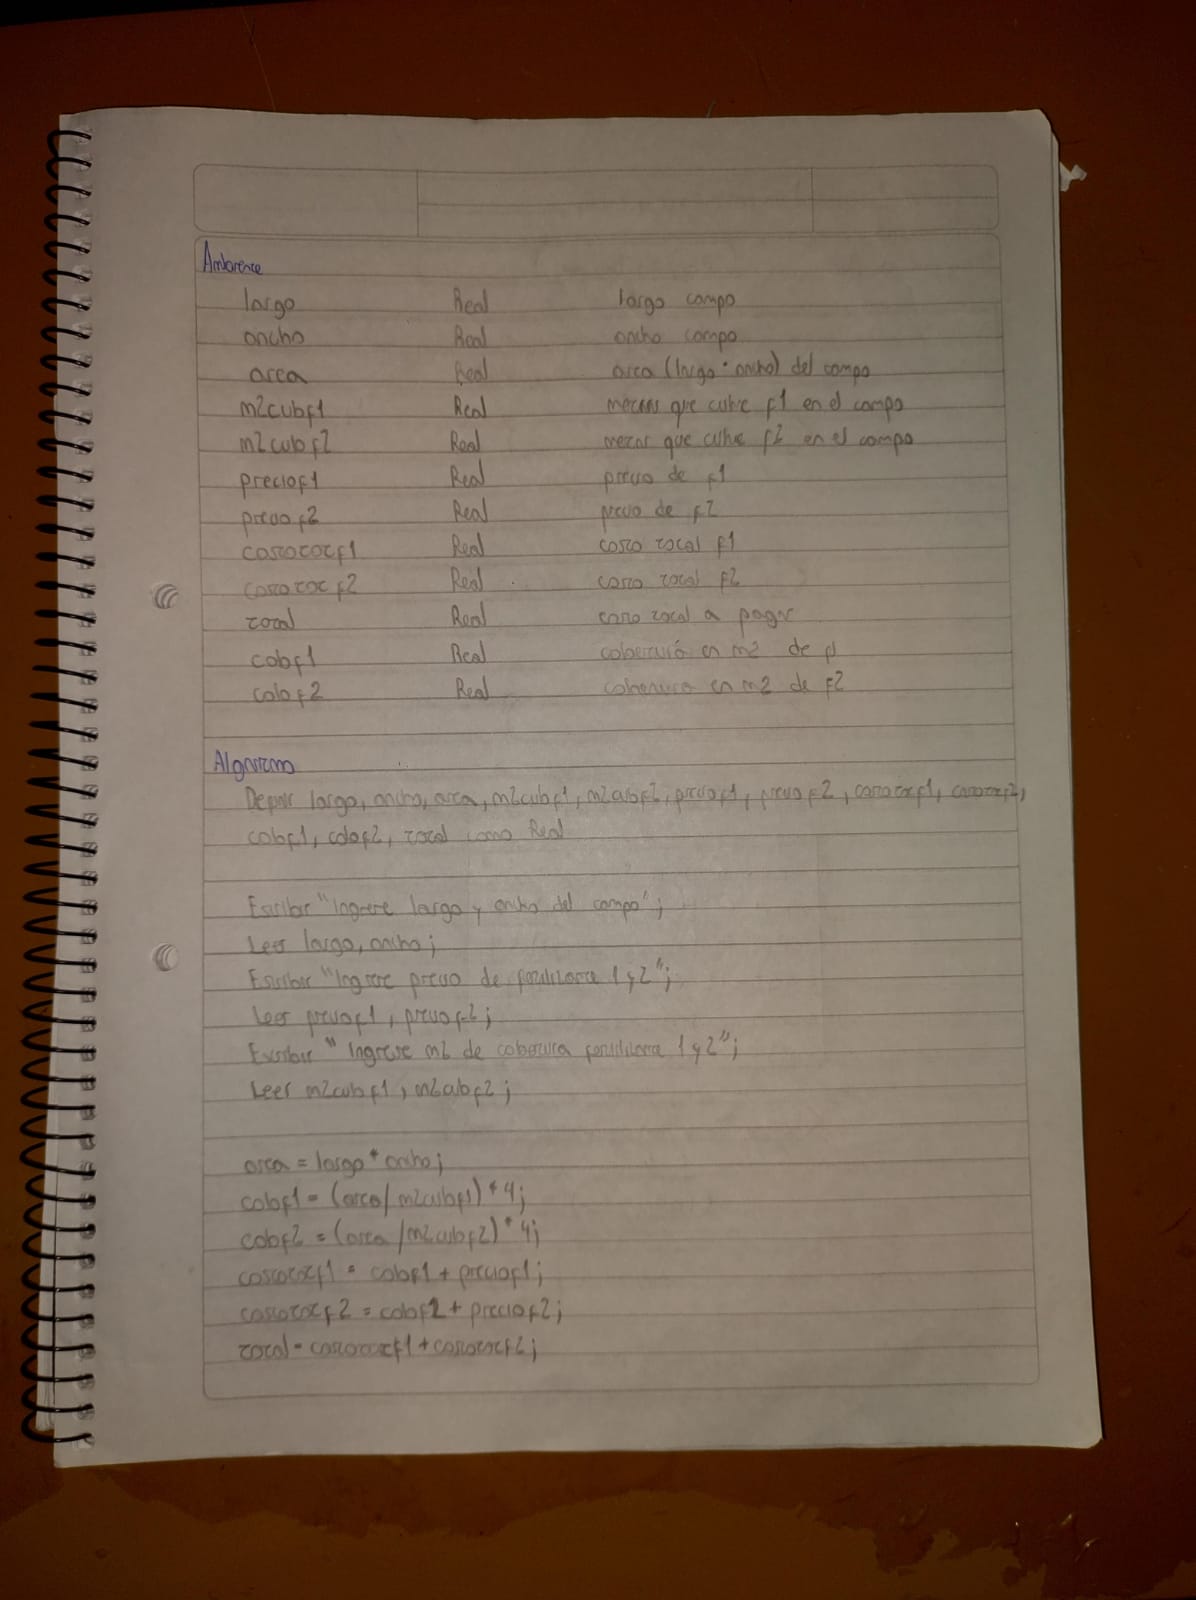 Ambiente
largo Real largo campo
ancho Real ancho campo
area Real area (largo * ancho) del campo
m2cubf1 Real metros que cubre f1 en el campo
m2cubf2 Real metros que cubre f2 en el campo
preciof1 Real precio de f1
preciof2 Real precio de f2
costototf1 Real costo total f1
costototf2 Real costo total f2
total Real costo total a pagar
cobf1 Real cobertura en m2 de f1
cobf2 Real cobertura en m2 de f2
Algoritmo
Definir largo, ancho, area, m2cubf1, m2cubf2, preciof1, preciof2, costototf1, costototf2,
cobf1, cobf2, total como Real
Escribir "Ingrese largo y ancho del campo";
Leer largo, ancho;
Escribir "Ingrese precio de fertilizante 1 y 2";
Leer preciof1, preciof2;
Escribir "Ingrese m2 de cobertura fertilizante 1 y 2";
Leer m2cubf1, m2cubf2;
area = largo * ancho;
cobf1 = (area/m2cubf1) * 4;
cobf2 = (area/m2cubf2) * 4;
costototf1 = cobf1 + preciof1;
costototf2 = cobf2 + preciof2;
total = costototf1 + costototf2;